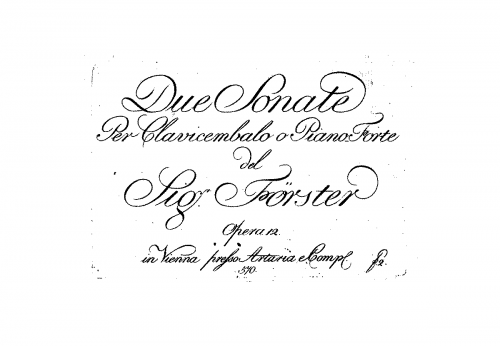 Due Sonate
Per Clavicembalo o Piano Forte
del
Sigr. Förster
Opera 12.
in Vienna presso Artaria e Compl.
570.
f 2.